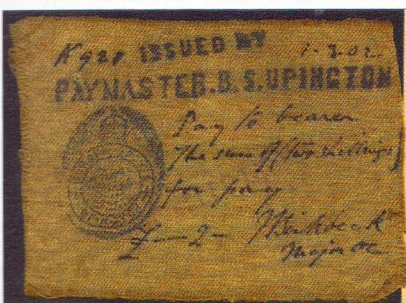 K 928 ISSUED BY 1.3.02
PAYMASTER.B.S.UPINGTON
Pay to bearer
The sum of (two shillings)
for pay
£ — 2 -
Major